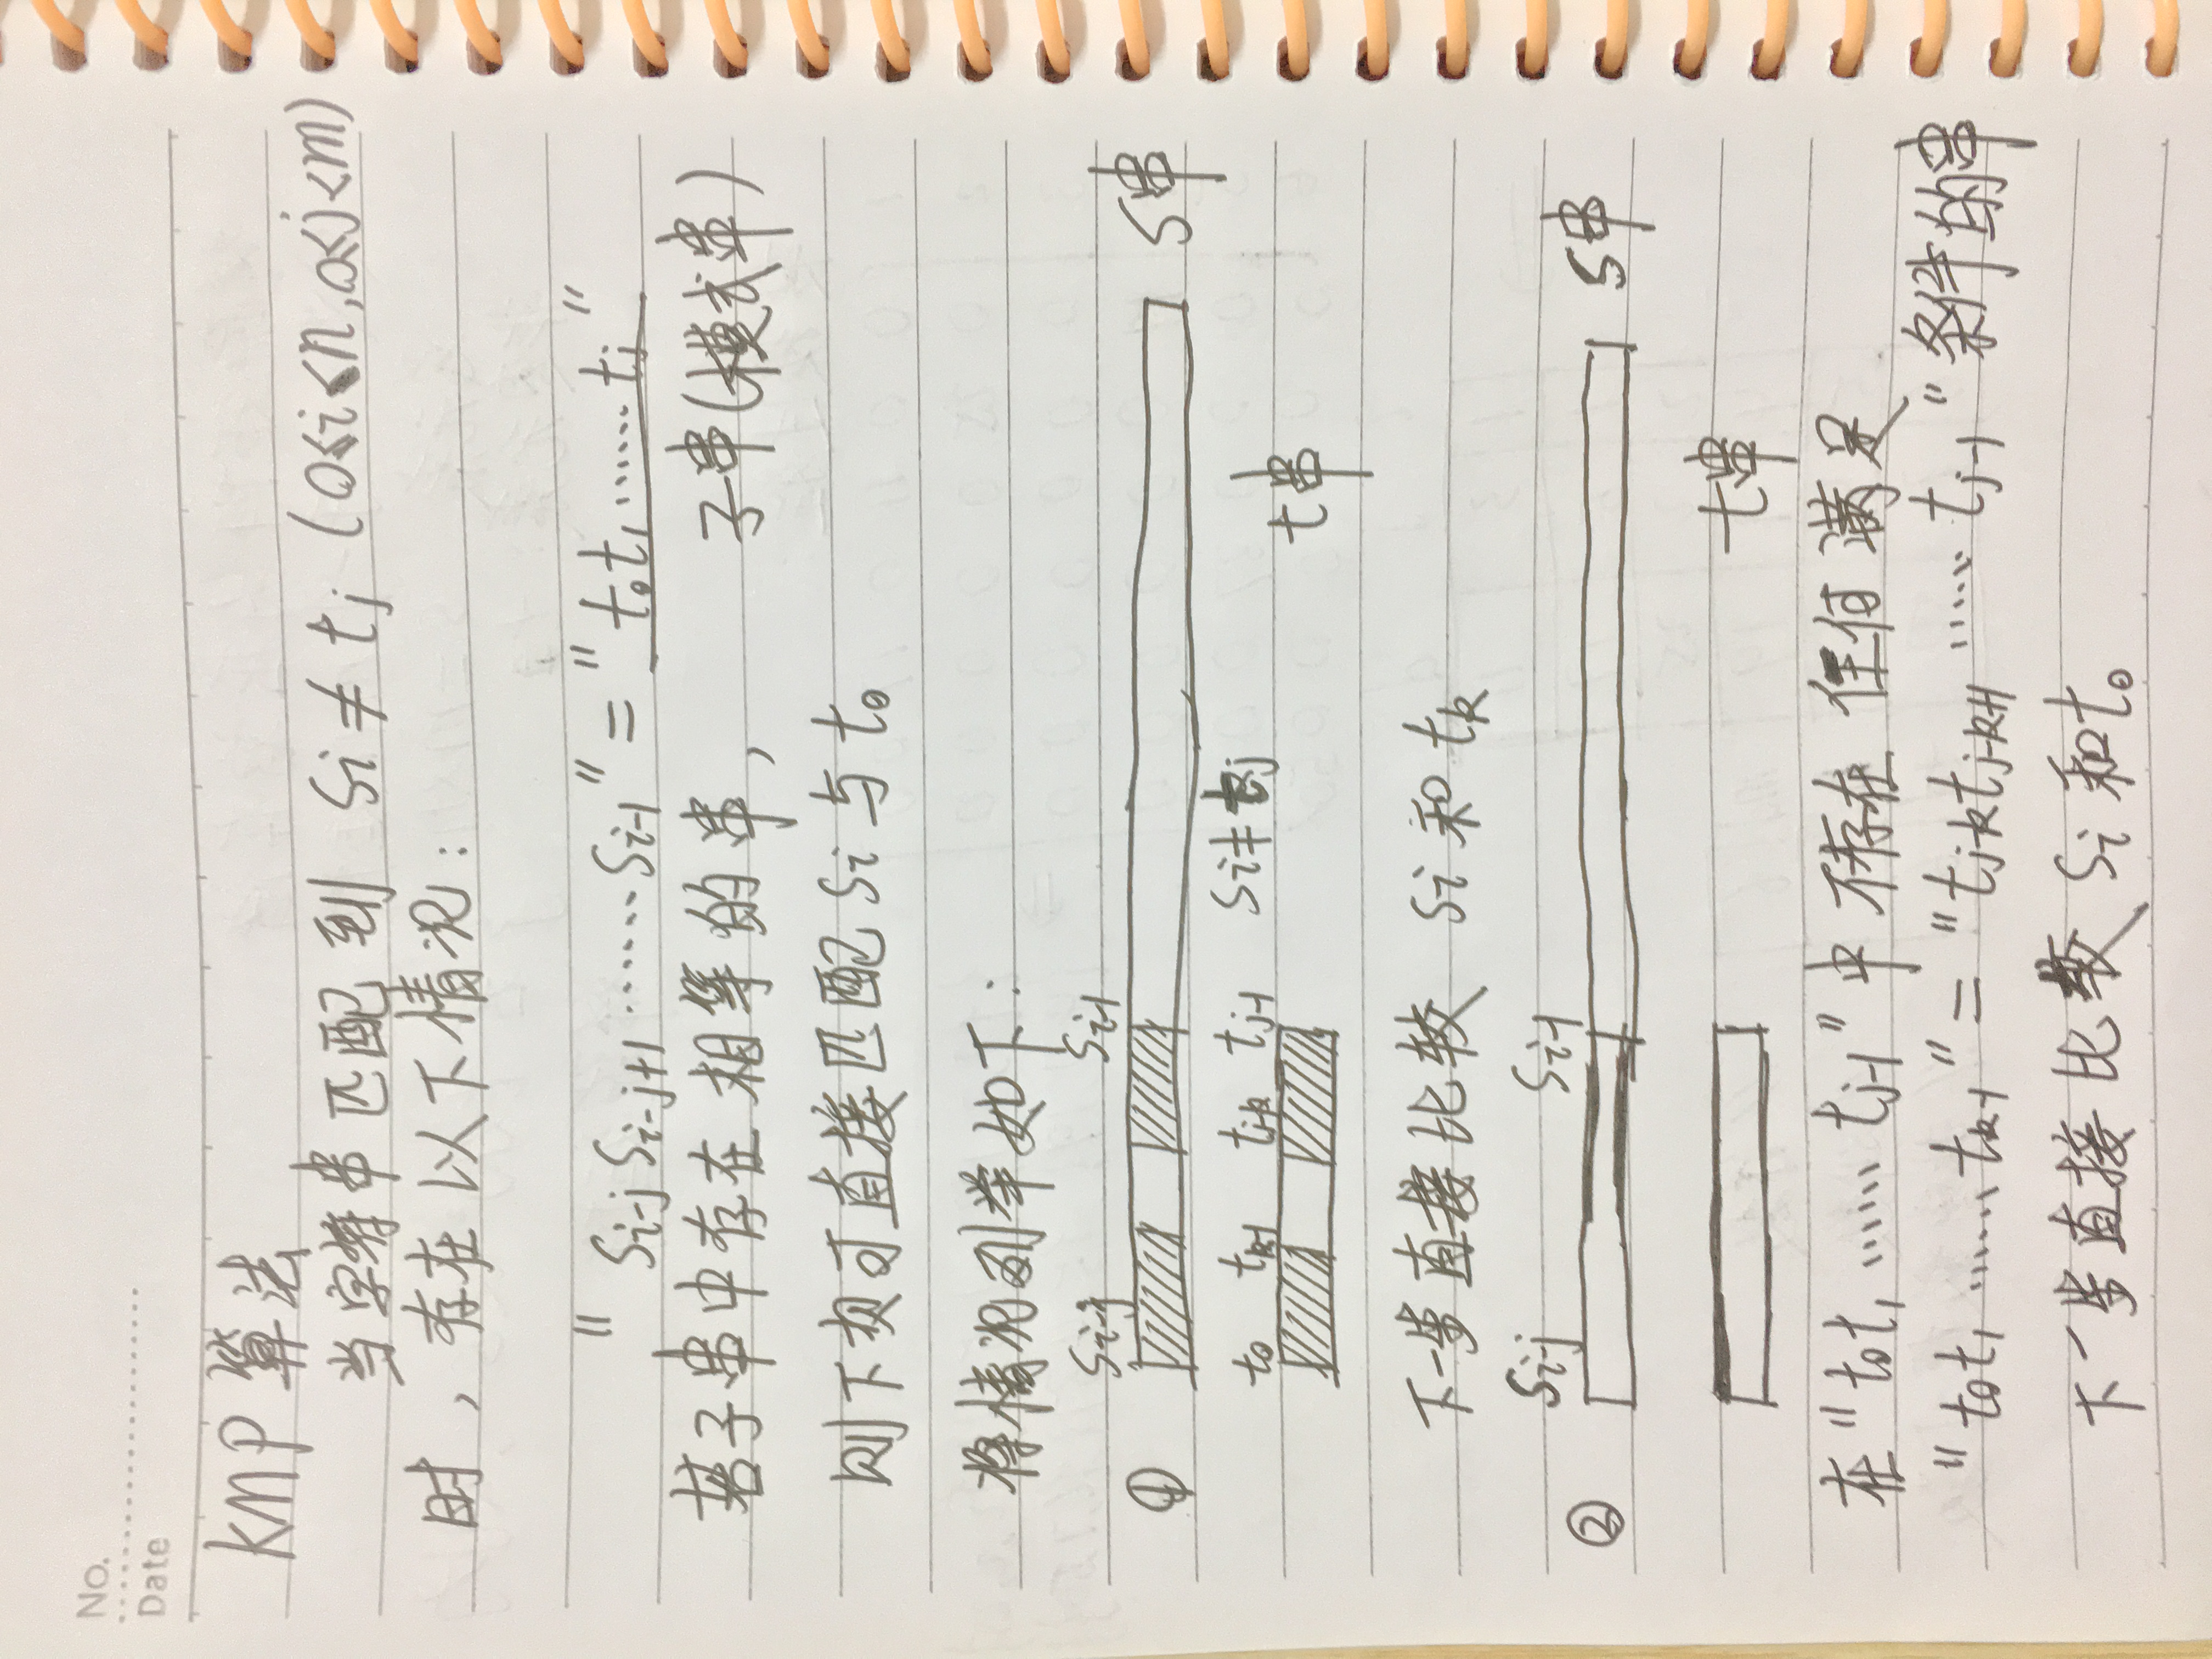 No.
Date
KMP 算法
当字符串匹配到 Si ≠ tj (0≤i<n,0≤j<m)
时，存在以下情况：
" Si-j Si-j+1 ······ Si-1 " = " t0 t1 ······ tj "
若子串中存在相等的串， 子串(模式串)
则下次可直接匹配 Si 与 t0
将情况列举如下：
Si-j Si-1
① S串
t0 tk-1 tj-k tj-1 Si ≠ tj
t串
下一步直接比较 Si 和 tk
Si-j Si-1
② S串
t串
在 " t0 t1 ······ tj-1 " 中 不存在 任何 满足
" t0 t1 ······ tk-1 " = " tj-k tj-k+1 ······ tj-1 " 条件的串
下一步直接比较 Si 和 t0